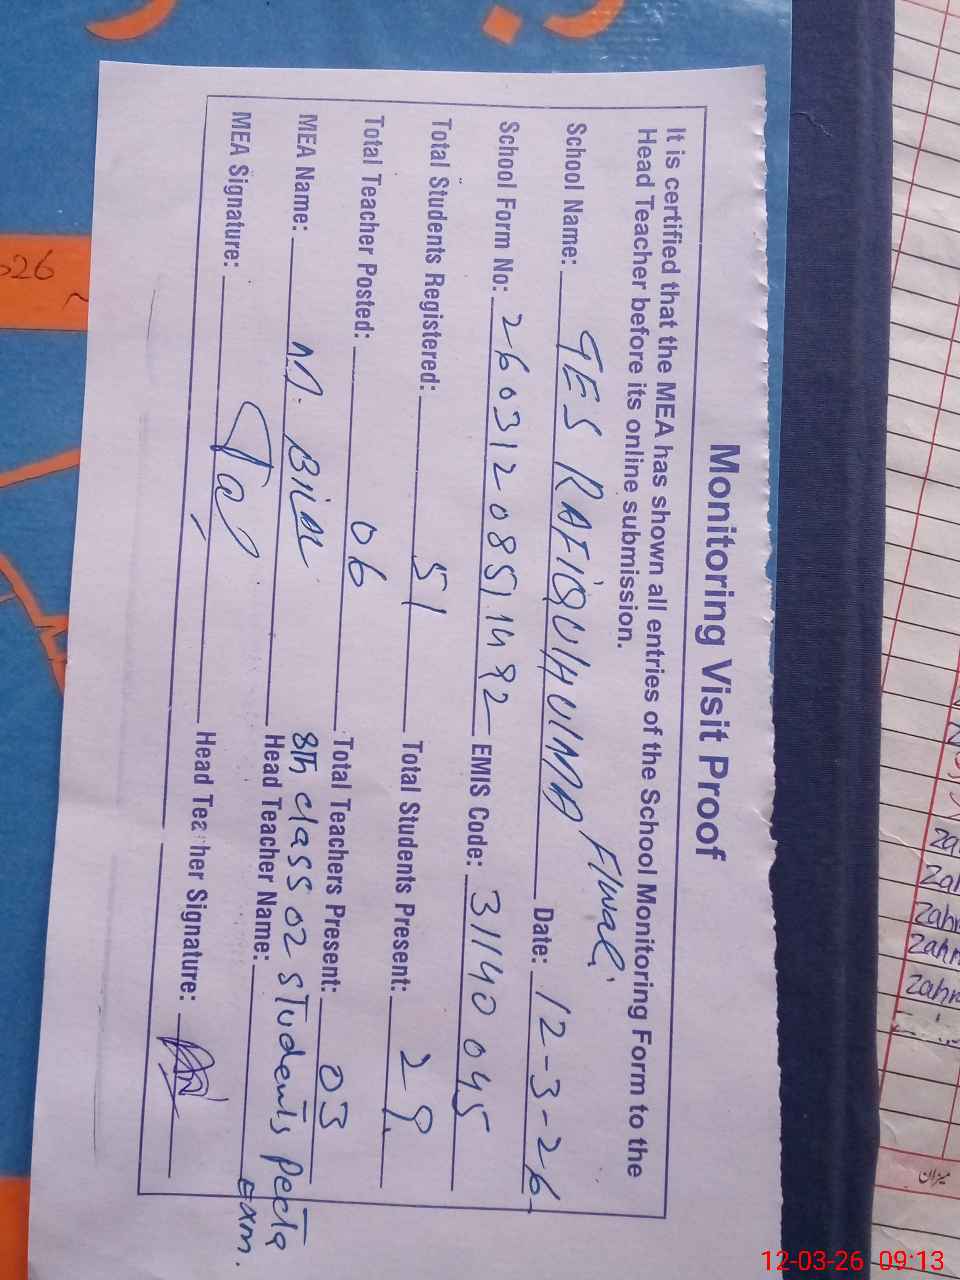 Monitoring Visit Proof
It is certified that the MEA has shown all entries of the School Monitoring Form to the
Head Teacher before its online submission.
School Name: GES RAFIQUIHUIMA Flwali Date: 12-3-26
School Form No: 2603120851492 EMIS Code: 31140045
Total Students Registered: 51 Total Students Present: 29
Total Teacher Posted: 06 Total Teachers Present: 03
MEA Name: M. BILAL Head Teacher Name:
8Th class 02 students Peeta
Exam.
MEA Signature: Head Teacher Signature:
626
Zahr
Zahr
Zahr
میزان
12-03-26 09:13